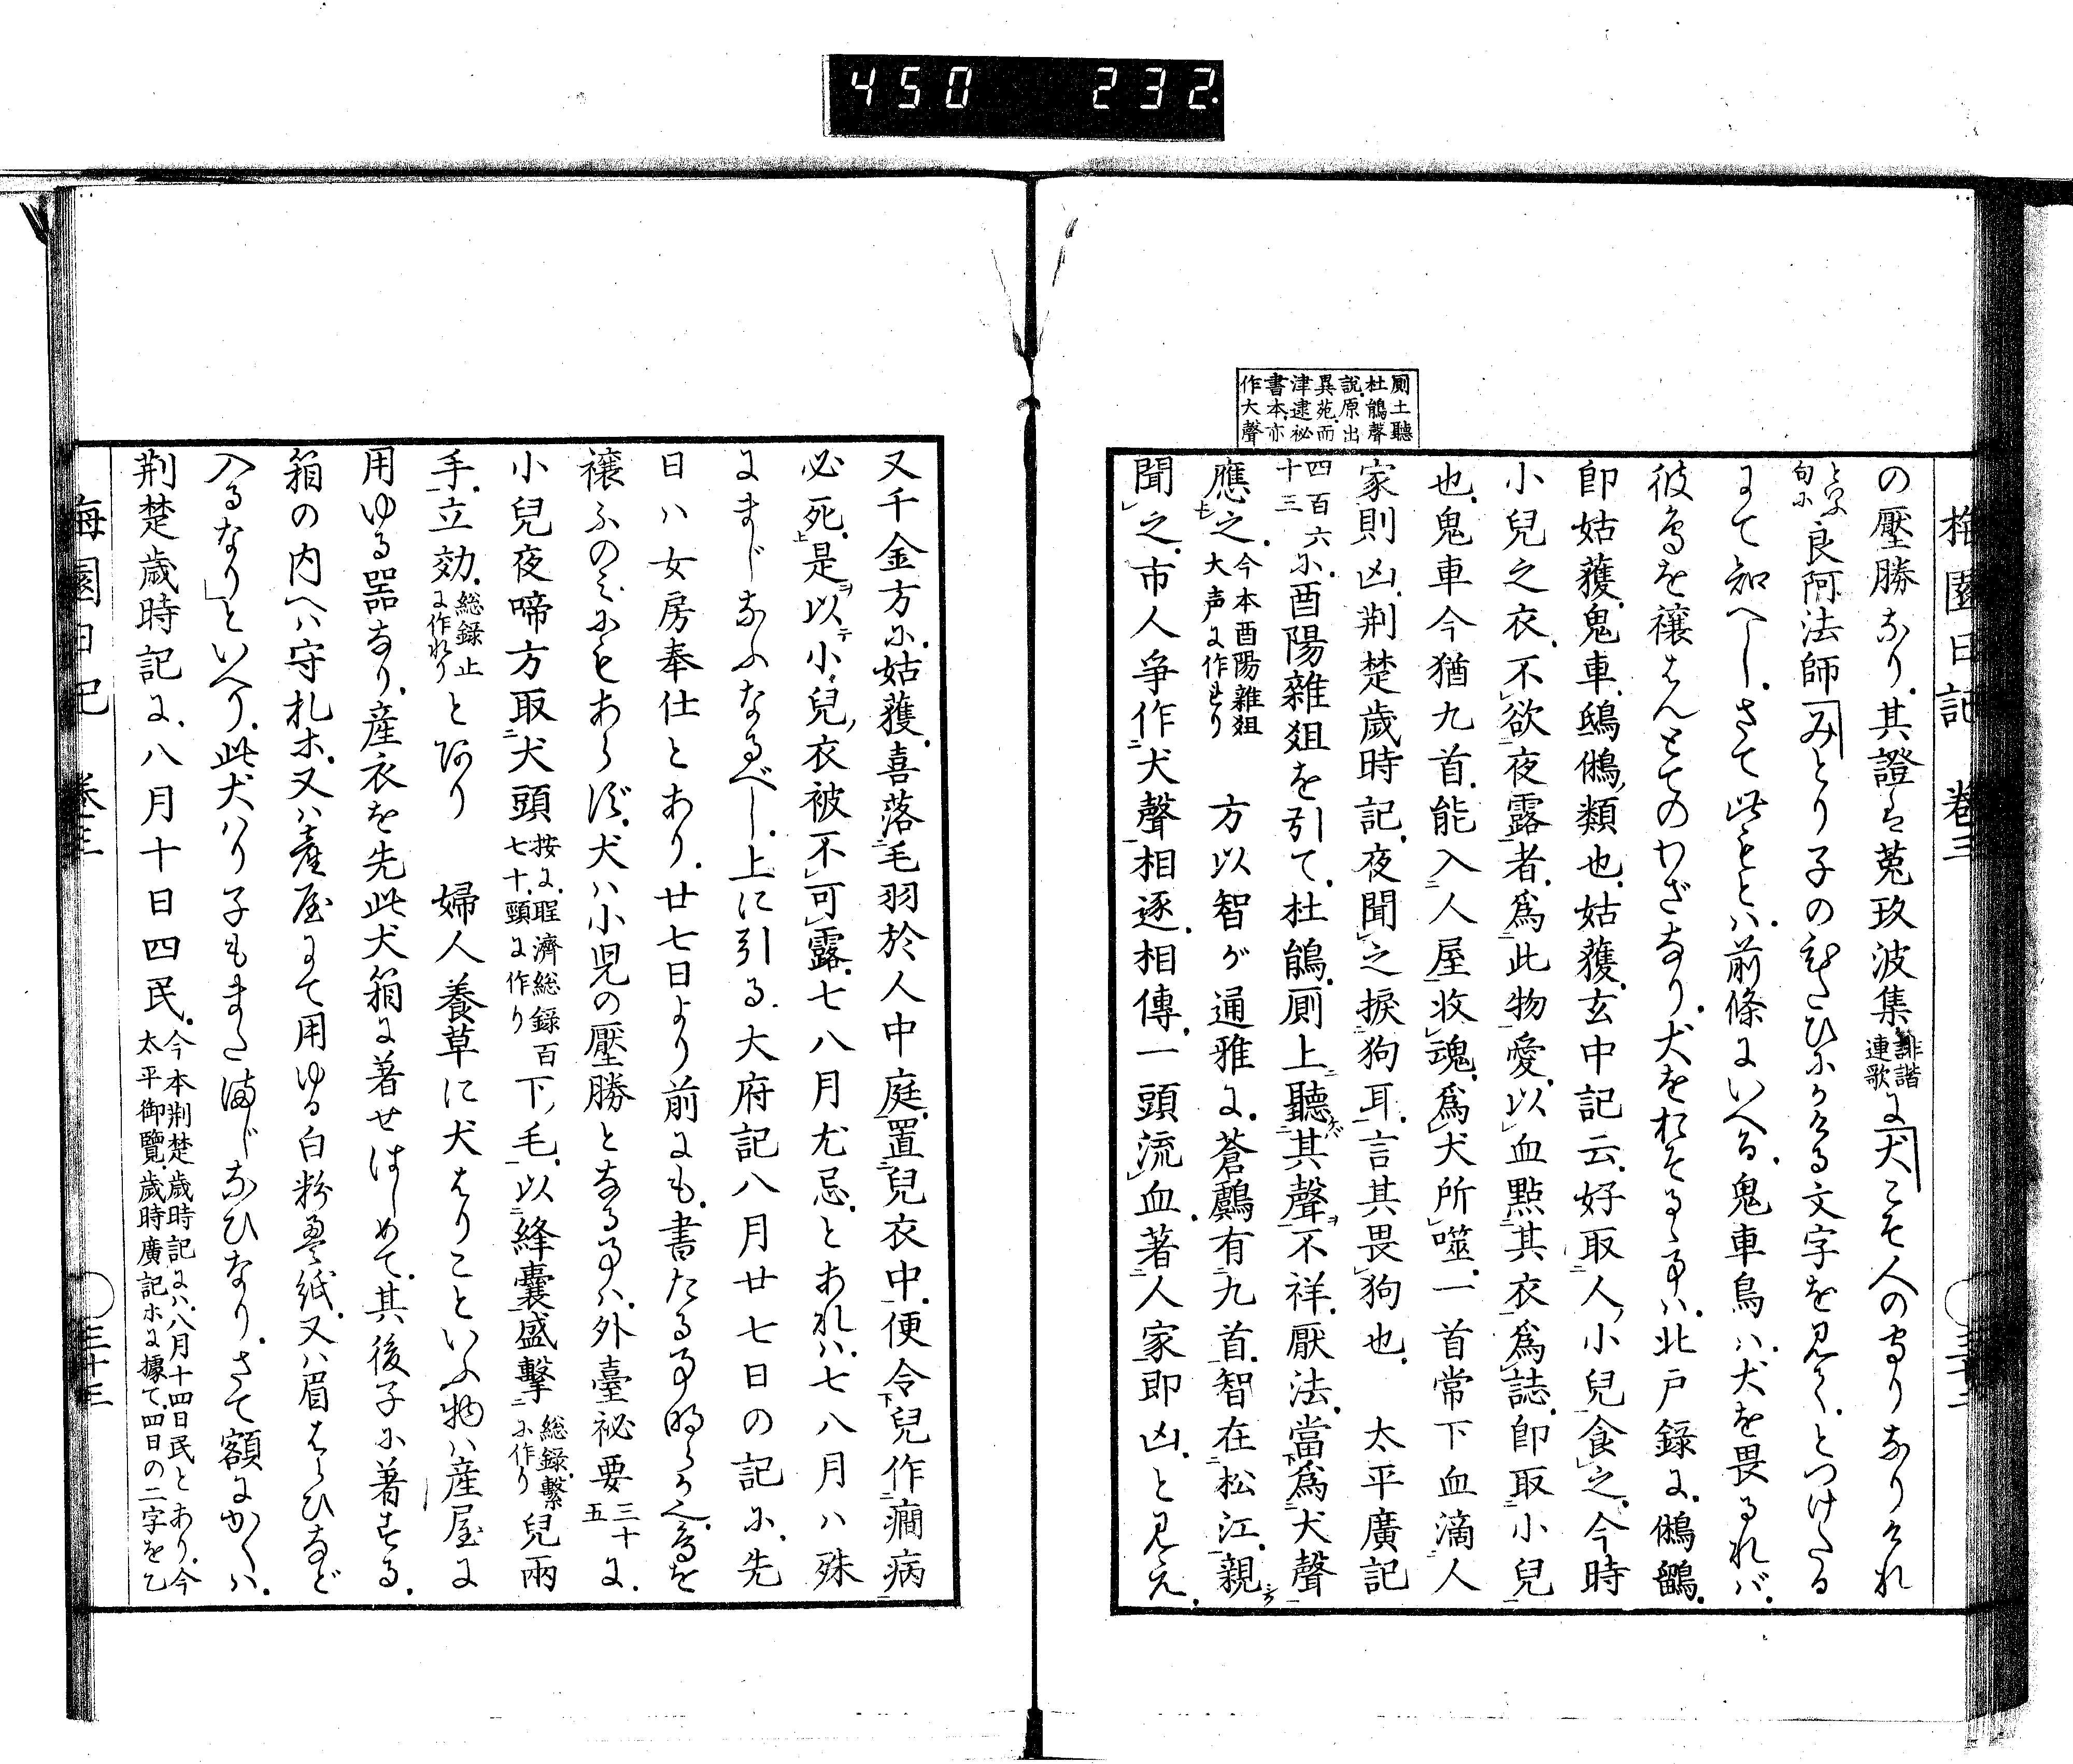 450 232
梅園日記 巻三
の壓勝なり、其證は菟玖波集誹諧連歌に「犬こそ人の守りなりけれ
といふ句に良阿法師「みとり子のひたひにかける文字を見て、とつけたる
にて知へし、さて此もとハ、前條にいへる、鬼車鳥ハ、犬を畏るれバ、
彼鳥を禳はんとてのわざなり、犬をおそるゝ事ハ、北戸録に、鵂鶹、
即姑獲、鬼車、鴟鵂類也、姑獲、玄中記云、好取人小兒食之、今時
小兒之衣、不欲夜露者、爲此物愛、以血點其衣爲誌、即取小兒
也、鬼車今猶九首、能入人屋收魂、爲犬所噬、一首常下血、滴人
家則凶、荆楚歲時記、夜聞之、捩狗耳、言其畏狗也、 太平廣記
四百六十三に、酉陽雜俎を引て、杜鵑、厠上聽其聲、不祥、厭法、當爲犬聲
應之、今本酉陽雜俎大声に作れり 方以智が通雅に、蒼鸆有九首、智在松江、親
聞之、市人爭作犬聲相逐、相傳、一頭流血、著人家即凶、と見え、
厠上聽
杜鵑聲
說原出
異苑而
津逮祕
書本亦
作大聲
又千金方に、姑獲、喜落毛羽於人中庭、置兒衣中、便令兒作癎病
必死、是以小兒衣被不可露、七八月尤忌、とあれハ、七八月ハ殊
にまじなふなるべし、上に引る、大府記八月廿七日の記に、先
日ハ女房奉仕とあり、廿七日より前にも、書たる事明らかなり、鳥を
禳ふのみにもあらず、犬ハ小児の壓勝となる事ハ、外臺祕要三十五に、
小兒夜啼方取犬頭按に、聖濟総録百七十、頸に作り下毛、以絳囊盛擊総録、繫に作り兒兩
手、立効、総録止に作れりとあり 婦人養草に犬はりこといふ物ハ産屋に
用ゆる器なり、産衣を先此犬箱に著せはしめて、其後子に著する、
箱の内へハ守札ホ、又ハ産屋にて用ゆる白粉畳紙、又ハ眉はらひなど
入るなり」といへり、此犬ハり子もまたまじなひなり、さて額にかくハ、
荆楚歲時記に、八月十日四民、今本荆楚歲時記にハ、八月十四日民とあり、今太平御覽、歲時廣記ホに據て、四日の二字を乙
梅園日記 巻三 三十三